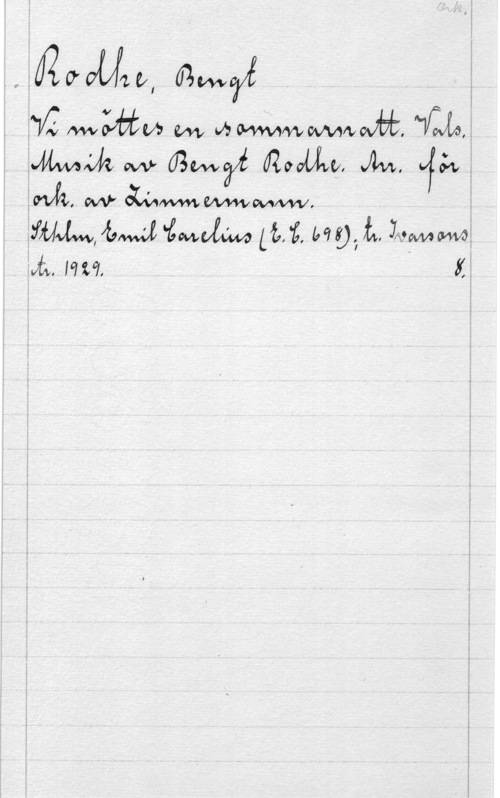 Ork.
Rodhe, Bengt
Vi möttes en sommarnatt. Vals.
Musik av Bengt Rodhe. Arr. för
ork. av Zimmermann.
Sthlm, Emil Carelius (E. C. 698); tr. Ivarsons
tr. 1929. 8.